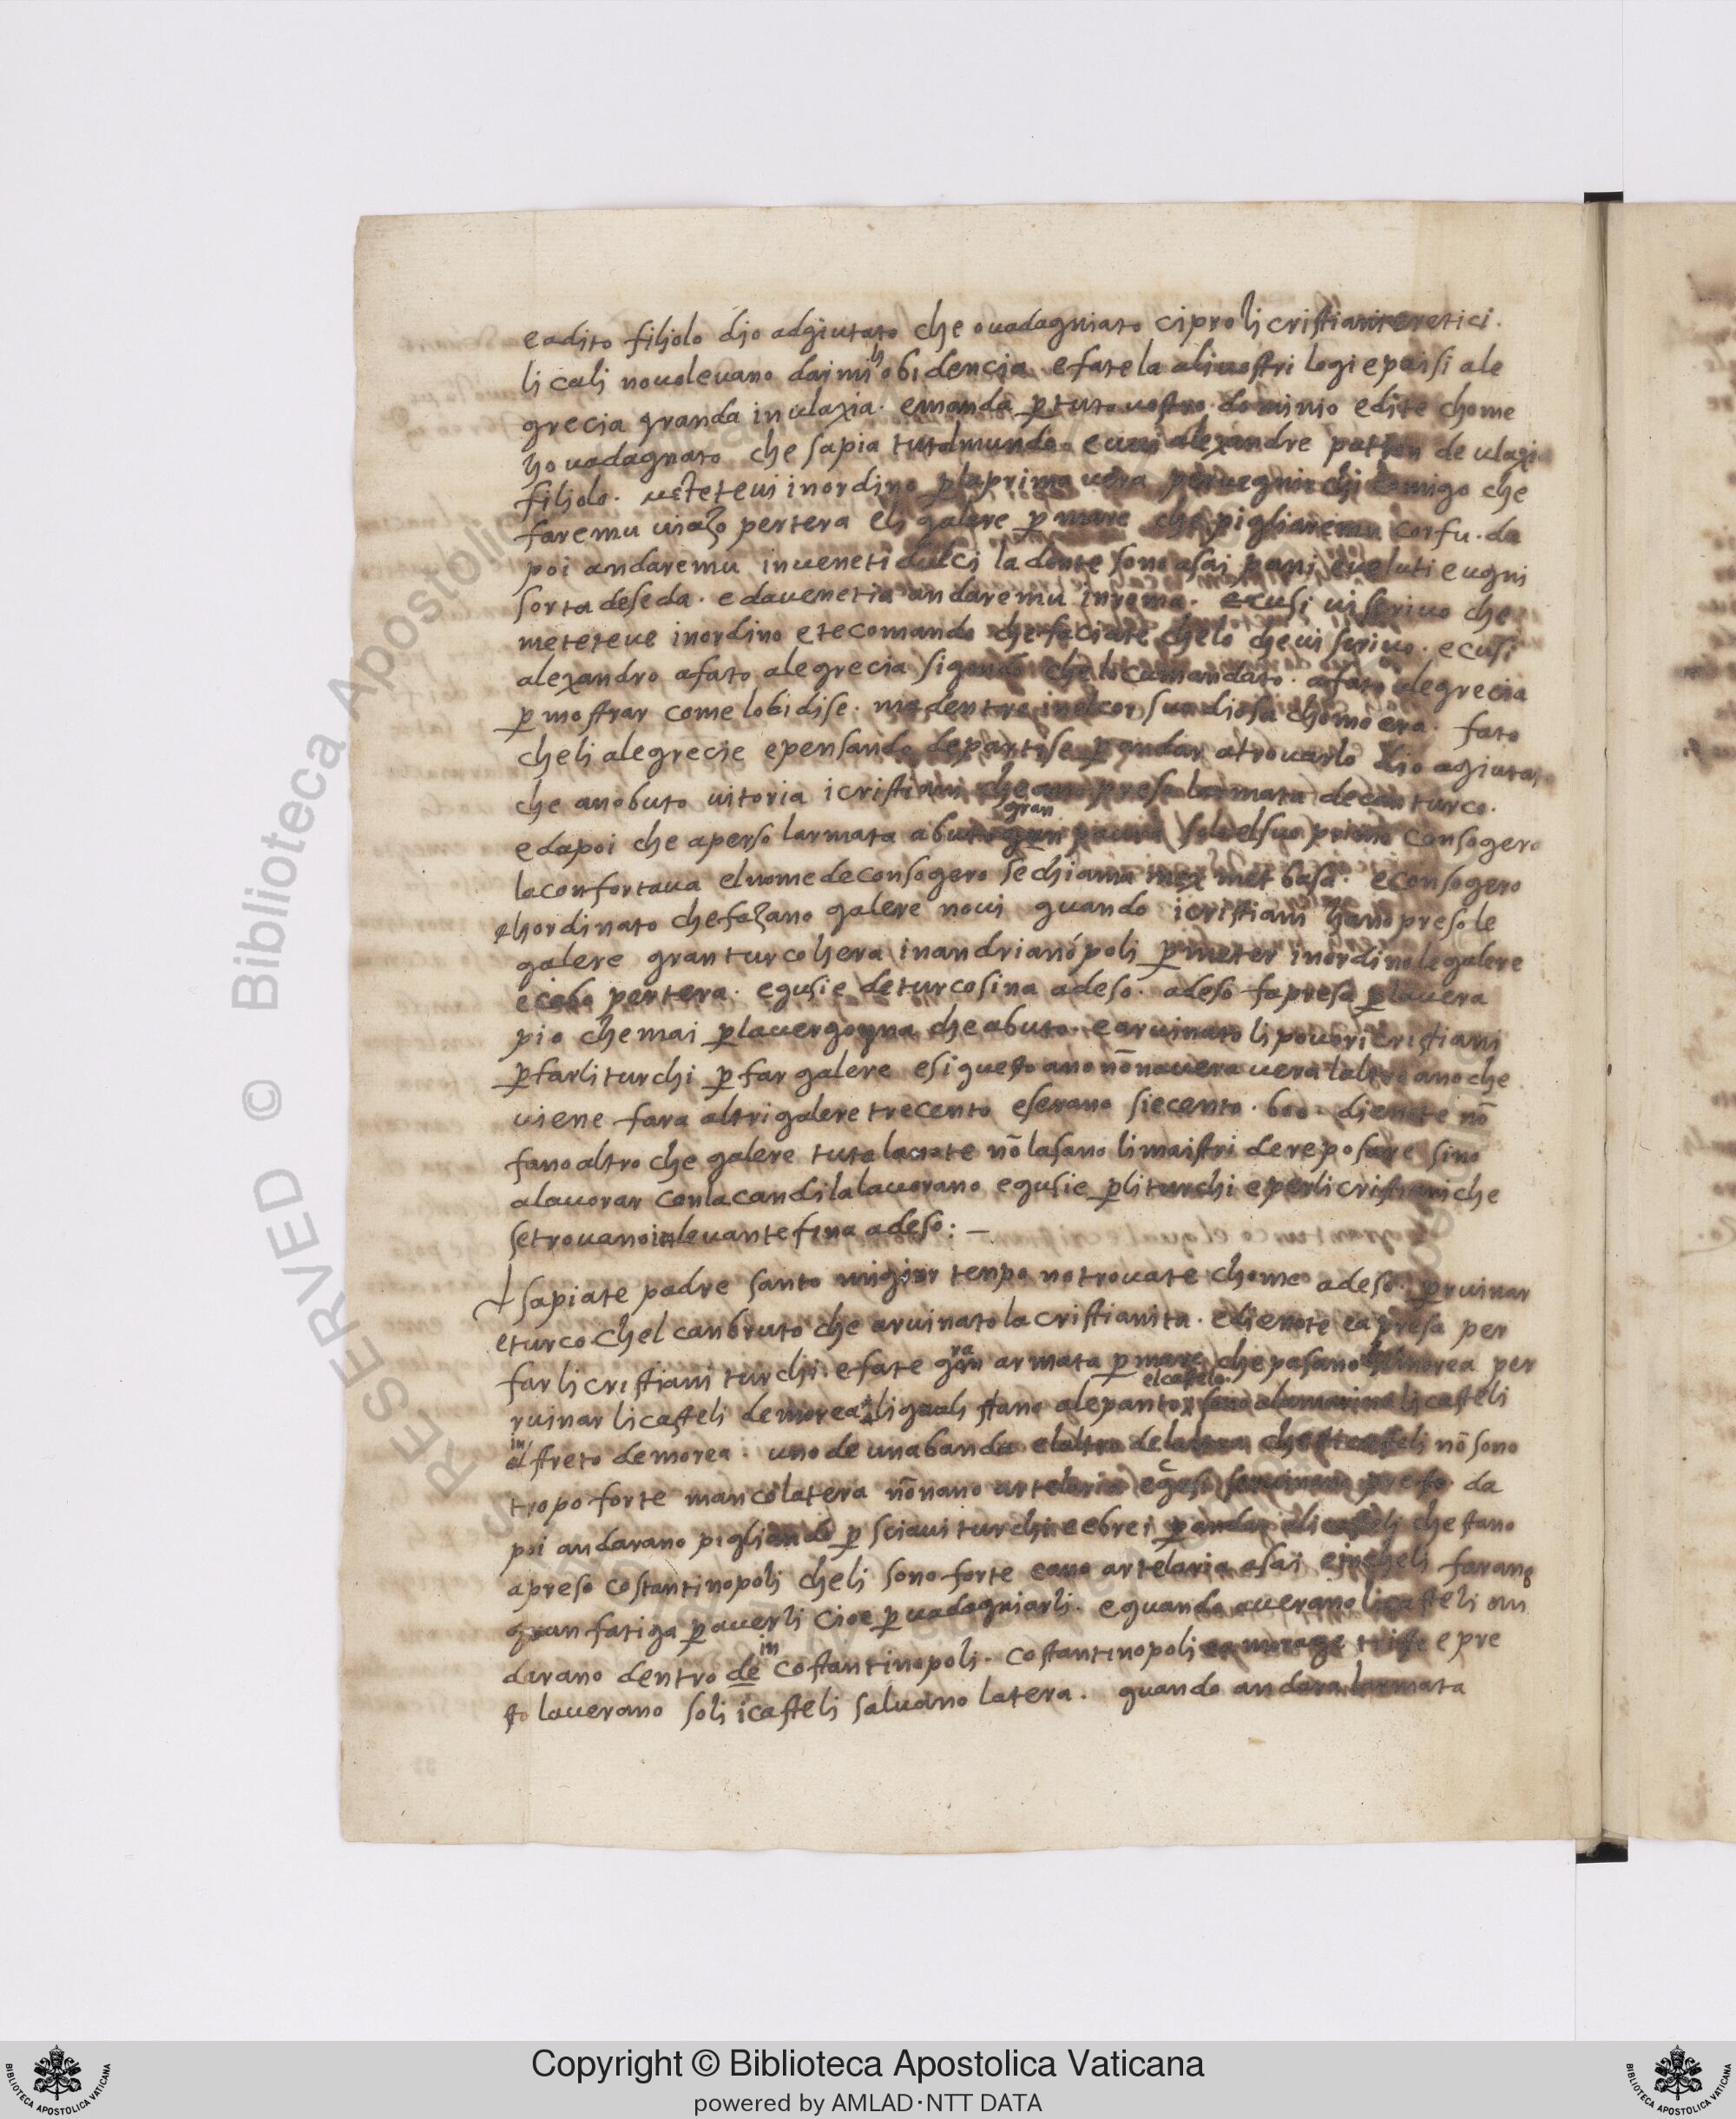 e adito filiolo dio adgiutato che ovadagniato cipro li cristiani eretici.
li cali no volevano daimi li obidencia e fate la ali vostri logi e paisi ale
grecia granda in vlaxia. e manda ꝑ tuto vostro dominio e dite chome
ho vadagnato che sapia tutolmundo e vui alexandre patron de vlaxia
filiolo. metetevi in ordino ꝑ la prima vera per vegnir chi comigo che
faremu viazo per tera e li galere ꝑ mare che pigliaremu corfu. da
poi andaremu in veneti dulci la donte sono asai pani e veluti e ugni
sorta de seda. e da venetia andaremu in roma. e cusi vi scrivo che
meteteve in ordino e te comando che faciate chelo che vi scrivo. e cusi
alexandro a fato alegrecia sigondo che lo camandato. a fato alegrecia
ꝑ mostrar come lobidise. ma dentro in el cor suo dio sa chomo era. fato
cheli alegrecie e pensando de partise ꝑ andar a trovarlo dio agiutato
che anobuto vitoria i cristiani che ano preso larmata de can turco.
e dapoi che a perso larmata a buto gran paura solo el suo primo consogero
la confortava el nome de consogero se chiama mex met basa. e consogero
e hordinato che fazano galere novi quando i cristiani hano preso le
galere gran turco hera in andrianópoli ꝑ meter in ordino le galere
e cebo per tera. e qusi e de turco sina adeso. adeso fa presa ꝑ la vera
pio che mai ꝑ la vergogna che abuto. e arvinato li poveri cristiani
ꝑ farli turchi ꝑ far galere e si questo ano nō navera vera laltro ano che
viene fara altri galere trecento e serano siecento. 600. di e note nō
fano altro che galere tuta la note nō lasano li maistri de reposare sino
a lavorar con la candila lavorano e qusi e ꝑ li turchi e per li cristiani che
se trovano in levante fina adeso: —
sapiate padre santo miglior tenpo no trovate chome adeso. ꝑ ruinar
e turco chel can bruto che arvinato la cristianita. e di e note ea presa per
far li cristiani turchi. e fate gran armata ꝑ mare che pasano la morea per
el castelo.
ruinar li casteli de morea li quali stano a lepanto sono a la marina li casteli
in streto de morea. uno de una banda e laltro de laltra che sti casteli nō sono
tropo forte manco la tera nō nano artelaria e cqusi seranno preso. da
poi andarano pigliando ꝑ sciavi turchi e ebrei ꝑ andar a li casteli che stano
apreso costantinopoli cheli sono forte e ano artelaria asai e in cheli farano
gran fatiga ꝑ averli cioe ꝑ vadagniarli. e quando averano li casteli an
darano dentro de in costantinopoli. costantinopoli triste e pre
sto laverano soli i casteli salvano la tera. quando andara larmata
Copyright © Biblioteca Apostolica Vaticana
powered by AMLAD·NTT DATA